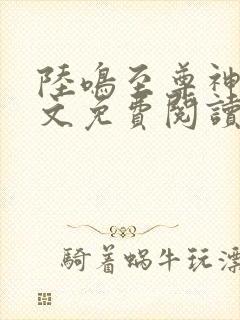 陸鳴至尊神
文免費閱讀
騎着蝸牛玩漂